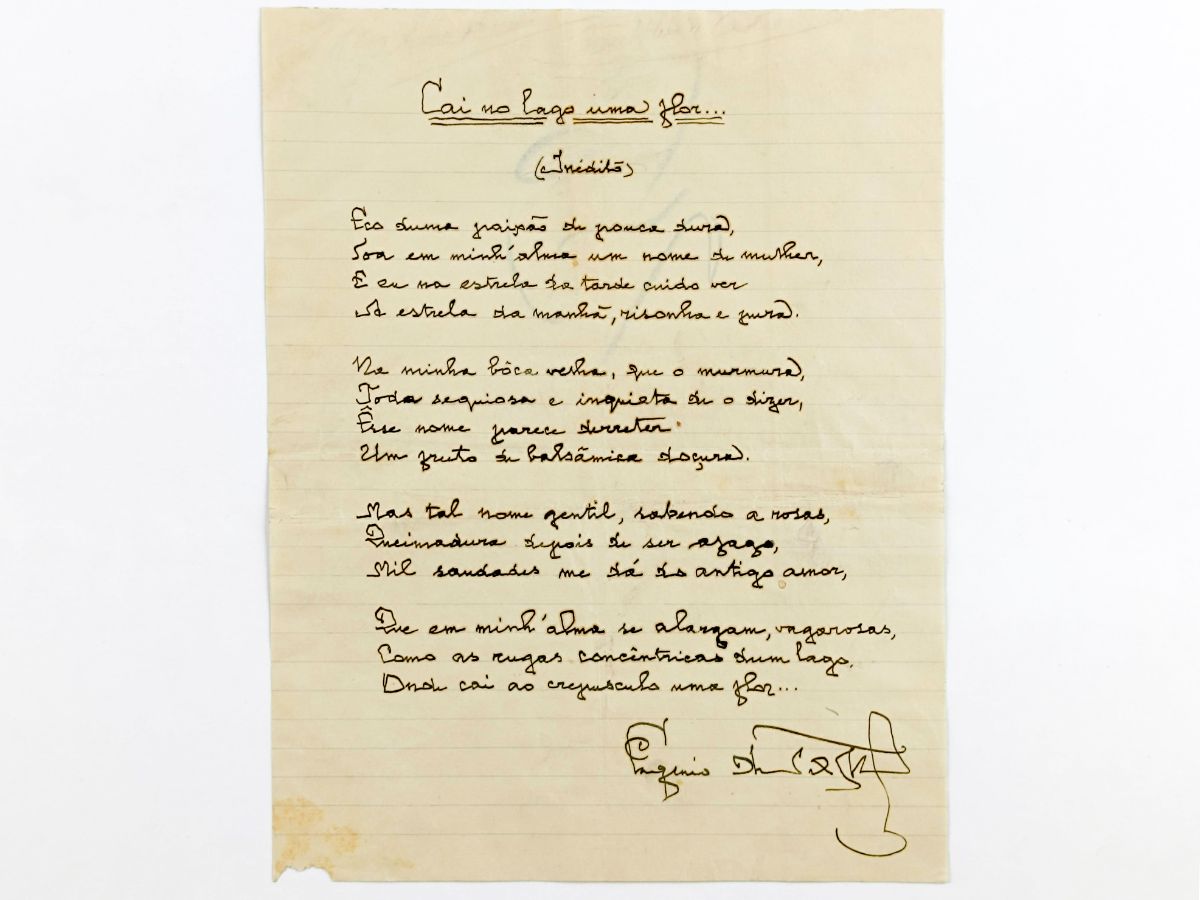 Cai no lago uma flor...
(Inédito)
Eco duma paixão de pouca dura,
Soa em minh'alma um nome de mulher,
E eu na estrela da tarde cuido ver
A estrela da manhã, risonha e pura.
Na minha bôca velha, que o murmura,
Toda sequiosa e inquieta de o dizer,
Êsse nome parece derreter
Um fruto de balsâmica doçura.
Mas tal nome gentil, sabendo a rosas,
Queimadura depois de ser afago,
Mil saudades me dá do antigo amor,
Que em minh'alma se alargam, vagarosas,
Como as rugas concêntricas dum lago,
Onde cai ao crepusculo uma flor...
Eugenio de Castro